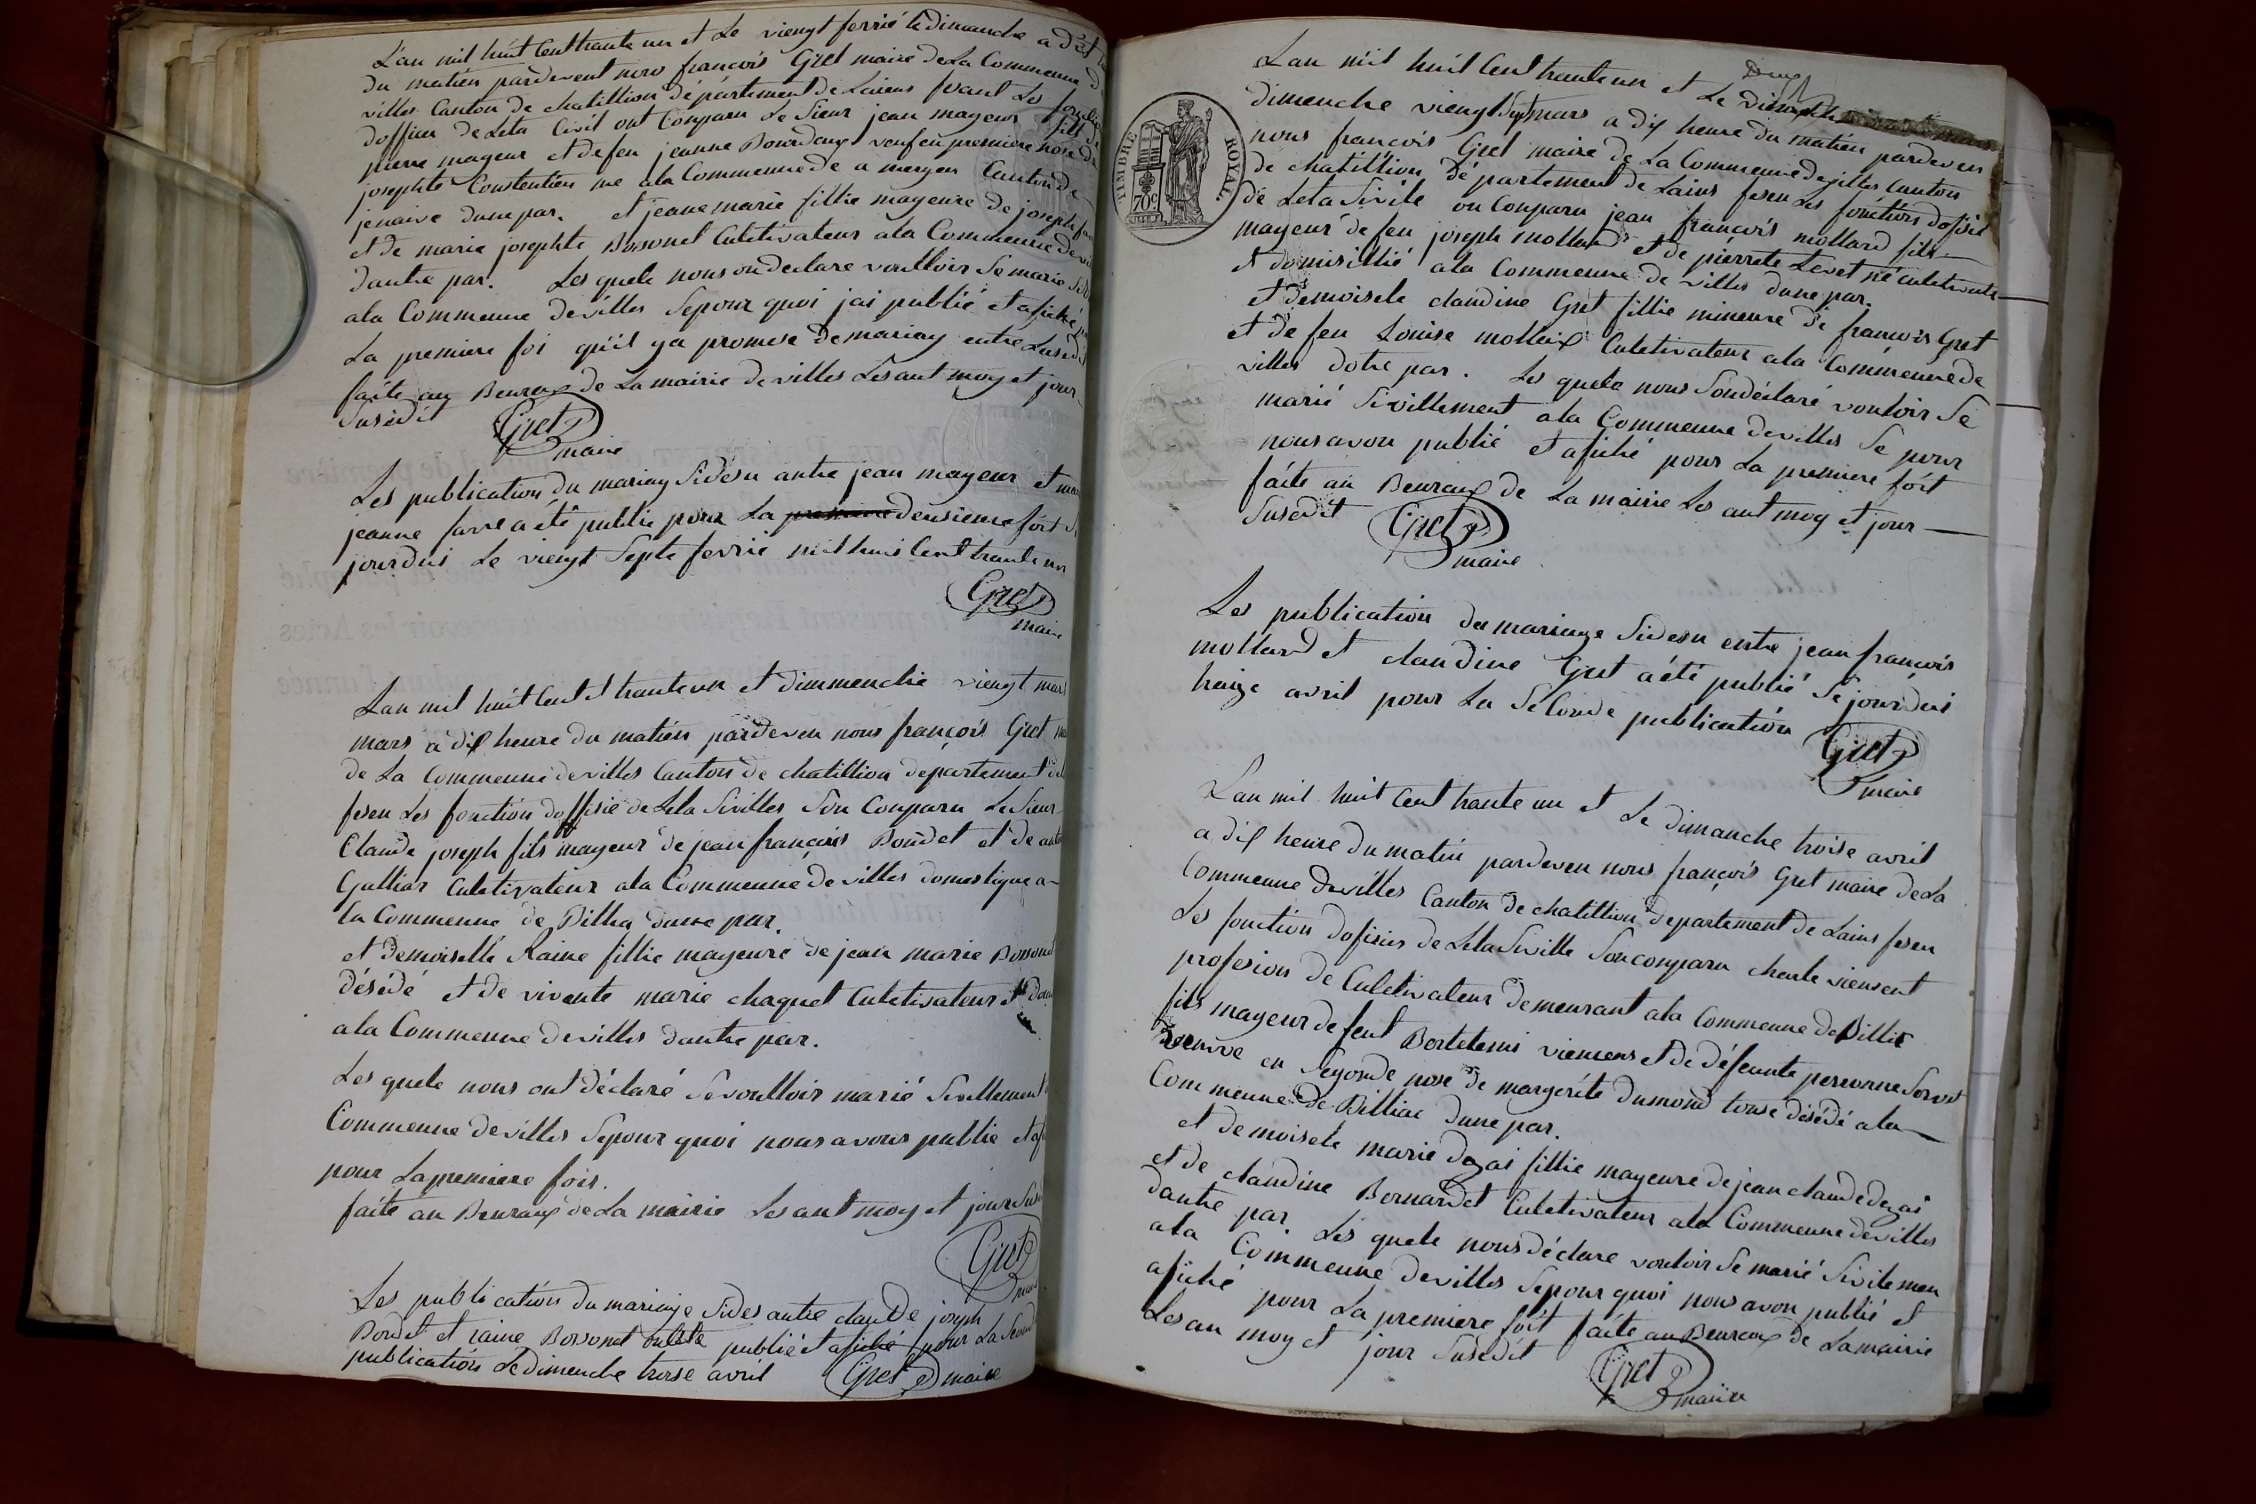 Lan mil huit Cent trante un et Le viengt ferrié le dimanche a dix
du matien pardevent nous francois Gret maire de La Commenne d
villes Canton de chatillion département de Laiens fesant Les
doffisier de Leta Civil ont Conparu Le Sieur jean mayeur fils de
pierre mayeur et de feu jeanne Bourdeux veuf en premiere nose de
josephte Constentien ne ala Commenne de Canton de
d'une par. et jeane marie fillie mayeure de joseph
et de marie josephte Bossonet Culetivateur ala Commenne de
dautre par. Les quele nous on declare voulloir Se marie
ala Commenne de villes Sepour quoi jai publié et afiché
La premiere foi qu'il ya promese de mariay entre Lesedi
faite au Beuraux de La mairie de villes Lesant moy et jour
Susédit Gret
maire
Les publication du mariay Sidesu antre jean mayeur et
jeanne favre a été publie pour La premiere deusieme foit
jourdui Le viengt Septe ferrie mil huis Cent trante un
Gret
maire
Lan mil huit Cent trante un et dimmenche viengt mars
mars a dix heure du matien pardeven nous françois Gret
de La Commenne de villes Canton de chatillion departement de
fesen Les fonction doffisié de Leta Sivilles Son Conparu Le Sieur
Claude joseph fils mayeur de jean francois Boudet et de
Galliar Culetivateur ala Commenne de villes domestique a
la Commenne de Billia dune par.
et demoiselle Raine fillie mayeure de jean marie Bossonet
désédé et de vivente marie chaquet Culetivateur et
ala Commenne de villes dautre par.
Les quele nous ont déclaré Se voulloir marié Sivillement
Commenne de villes Sepour quoi nous avons publie et
pour La premiere fois.
faite au Beuraux de La mairie Lesant moy et jour Sus
Gret
maire
Les publication du mariage Sides antre claude joseph
Boudet et raine Bossonet publié et afiché pour La Seconde
publication Le dimenche troise avril Gret maire
TIMBRE ROYAL
70c
Lan mil huit Cent trante un et Le
dimenche viengt Septmars a dix heure du matien pardeven
nous françois Gret maire de La Commenne de villes Canton
de chatillion département de Lains fesen Les fonctions dofisié
de Leta Sivile on Conparu jean françois mollard fils
mayeur de feu joseph mollard et de pierrete Levet né culetivate
et domisillié ala Commenne de villes dune par.
et demoisele claudine Gret fillie mineure de françois Gret
et de feu Louise molleix Culetivateur ala Commenne de
villes dotre par. Les quele nous Son déclaré vouloir Se
marié Sivillement ala Commenne de villes Se pour
nous avon publié et afiché pour La premiere foit
faite au Beuraux de La mairie Les ant moy et jour
Susedit Gret
maire
Les publication du mariage Sidesu entre jean francois
mollard et claudine Gret a été publié Se jourdui
troize avril pour La Seconde publication Gret
maire
Lan mil huit Cent trante un et Le dimanche troise avril
a dix heure du matin pardeven nous françois Gret maire de La
Commenne de villes Canton de chatillion departement de Lains fesen
Les fonction dofisier de Leta Siville Son conparu charle viensent
profesion de Culetivateur demeurant ala Commenne de Billia
fils mayeur de feut Bertelemi viensens et de défeunte personne
en Segonde nose de margerite dumond désédé ala
Commenne de Billiac dune par.
et demoisele marie dezai fillie mayeure de jean claude dezai
et de claudine Bernardet Culetivateur ala Commenne de villes
dautre par. Les quele nous déclare vouloir Se marié Sivilemen
ala Commenne de villes Sepour quoi nous avon publié et
afiché pour La premiere foit faite au Beuraux de La mairie
Les an moy et jour Susedit Gret
maire